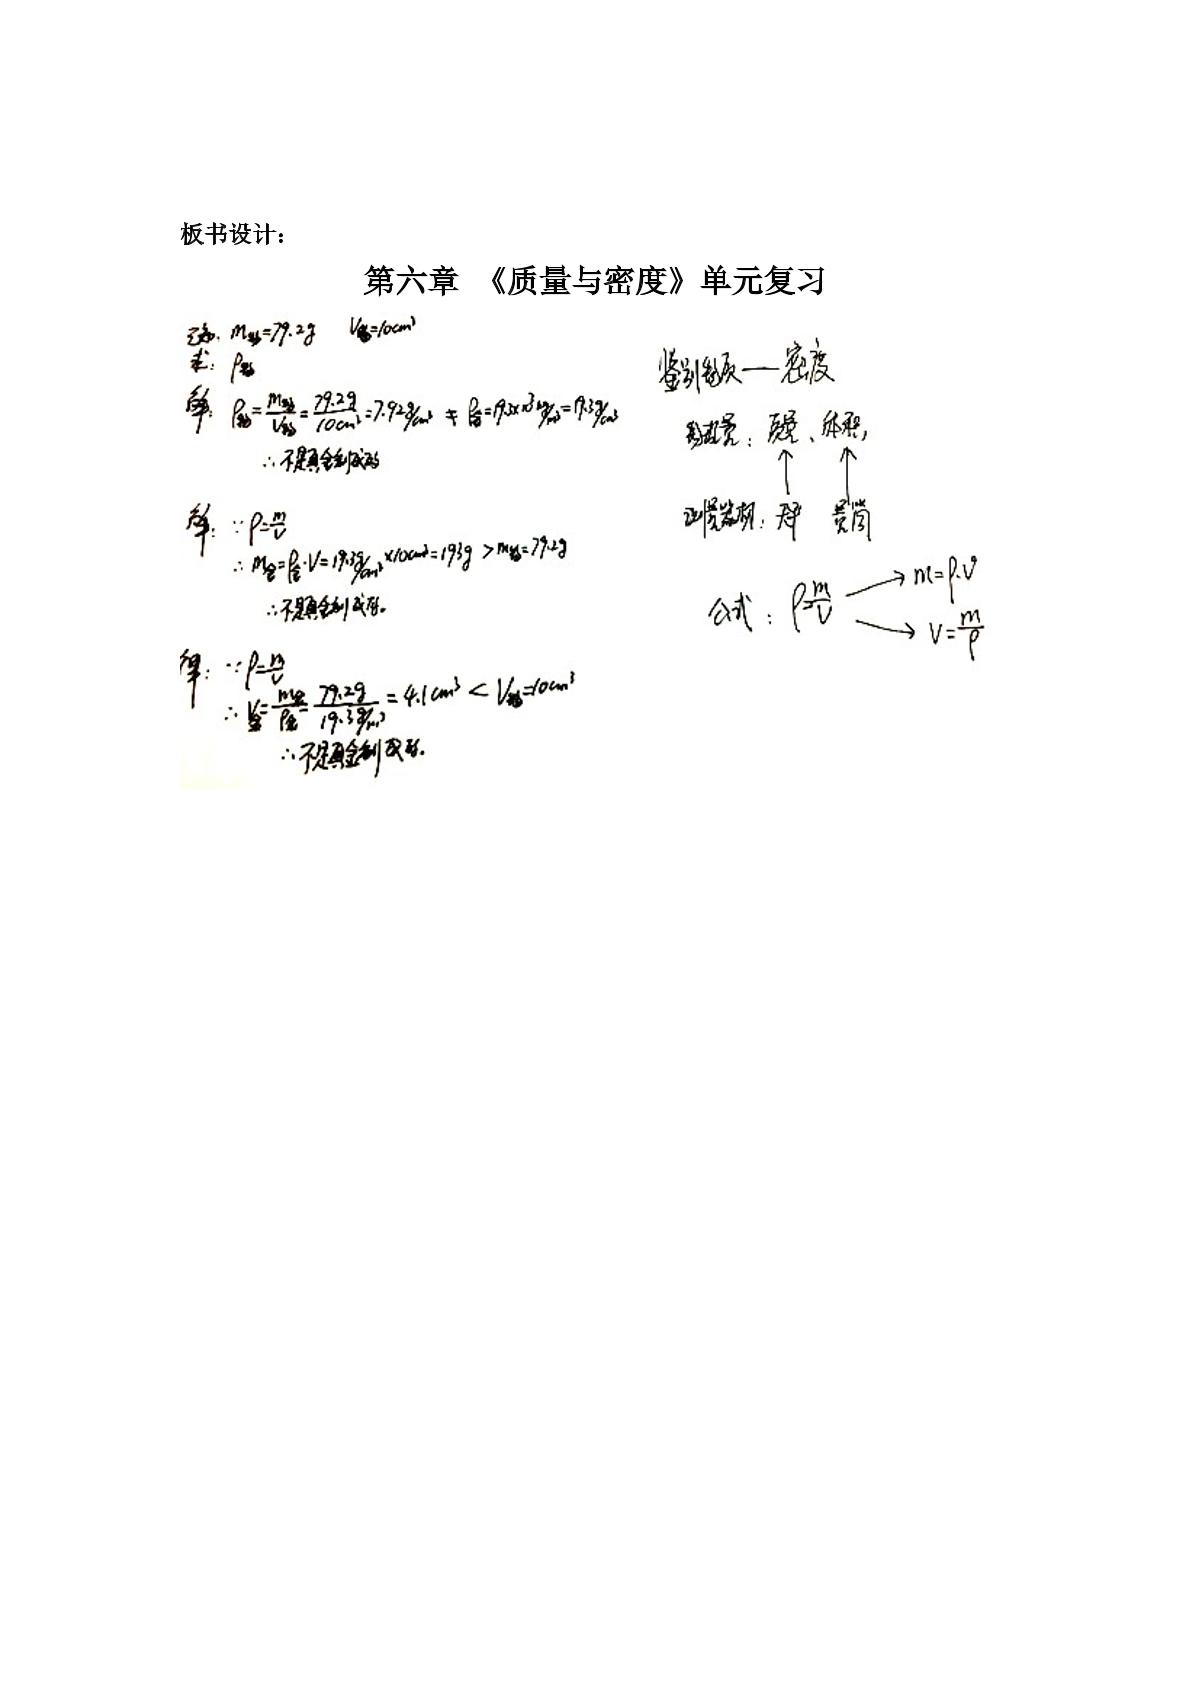 板书设计：
第六章 《质量与密度》单元复习
已知: m=79.2g V=10cm³
求: ρ
解: ρ=m/V=79.2g/10cm³=7.92g/cm³≠ρ金=19.3×10³kg/m³=19.3g/cm³
∴不是真金制成的
解: ∵ρ=m/V
∴m金=ρ金·V=19.3g/cm³×10cm³=193g>m=79.2g
∴不是真金制成的.
解: ∵ρ=m/V
∴V金=m金/ρ金=79.2g/19.3g/cm³=4.1cm³<V=10cm³
∴不是真金制成的.
鉴别物质——密度
质量、体积
↑ ↑
测量器材: 天平 量筒
公式: ρ=m/V → m=ρ·V
→ V=m/ρ